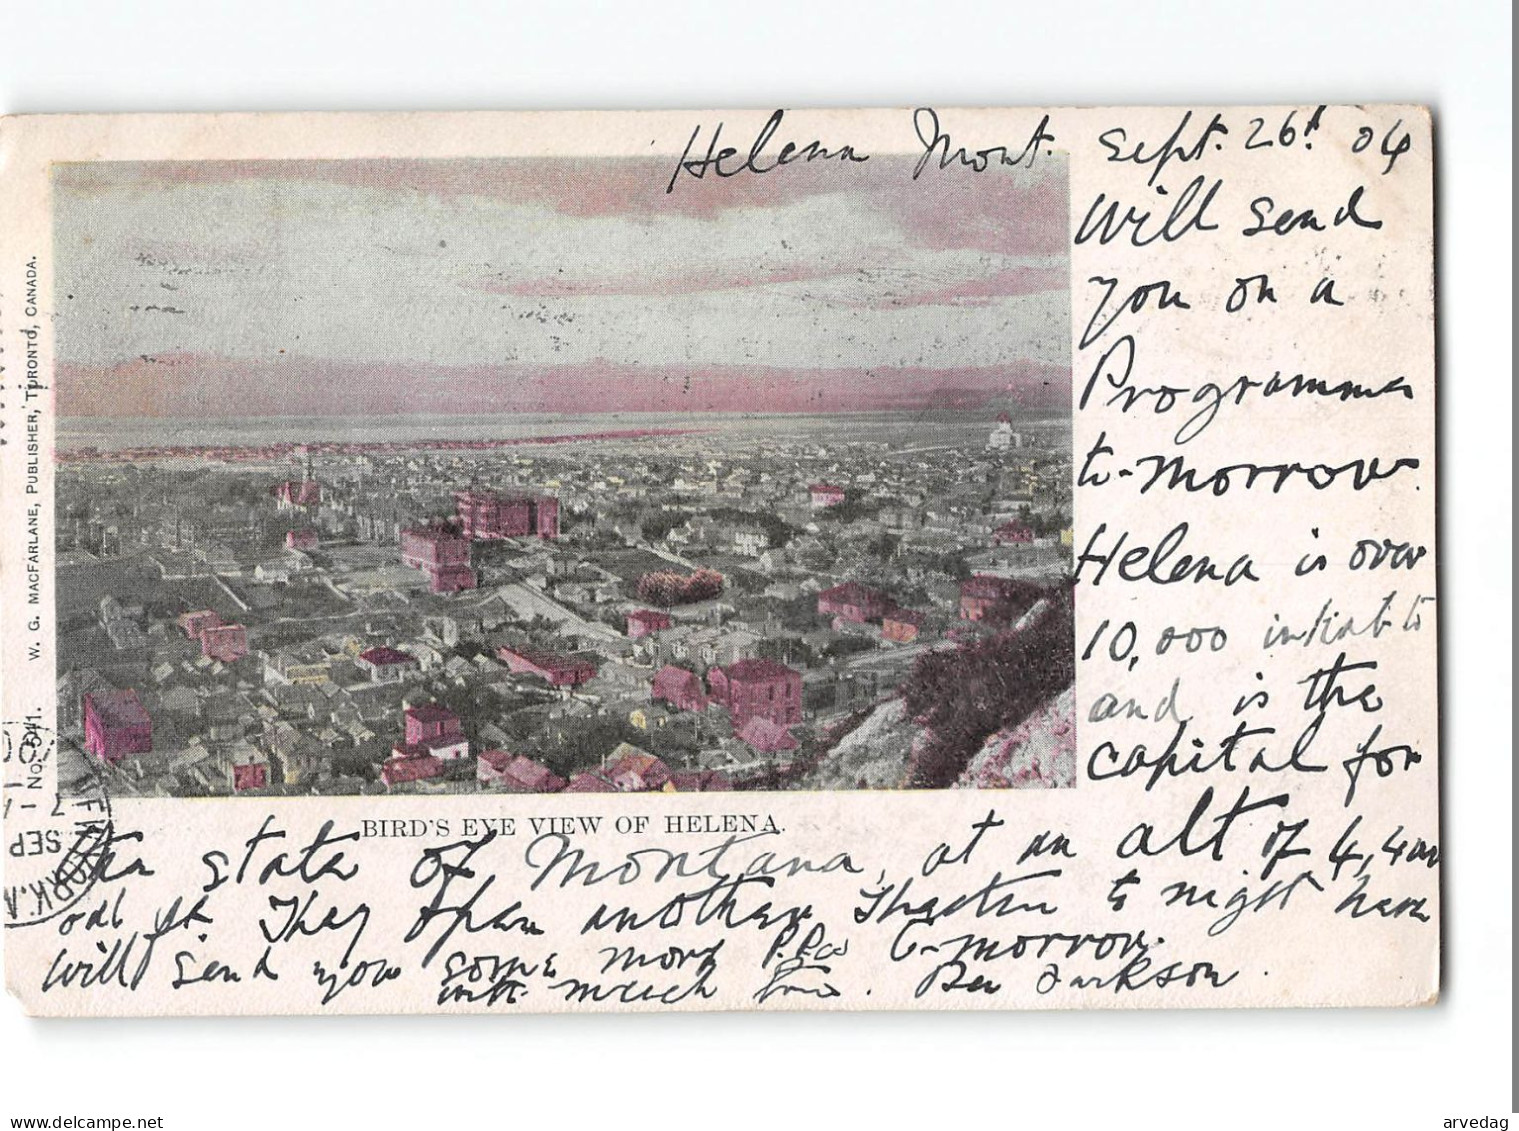 Helena Mont. Sept. 26t 04
Will send
you on a
Programme
to-morrow.
Helena is over
10,000 inhabits
and is the
capital for
the state of Montana, at an alt of 4,400
odd ft. They open another Theatre to night here
will send you some more P.Pcs to-morrow.
with much love. Ben Jackson.
BIRD'S EYE VIEW OF HELENA.
W. G. MACFARLANE, PUBLISHER, TORONTO, CANADA.
No. 541.
SEP
ORK, N
www.delcampe.net
arvedag